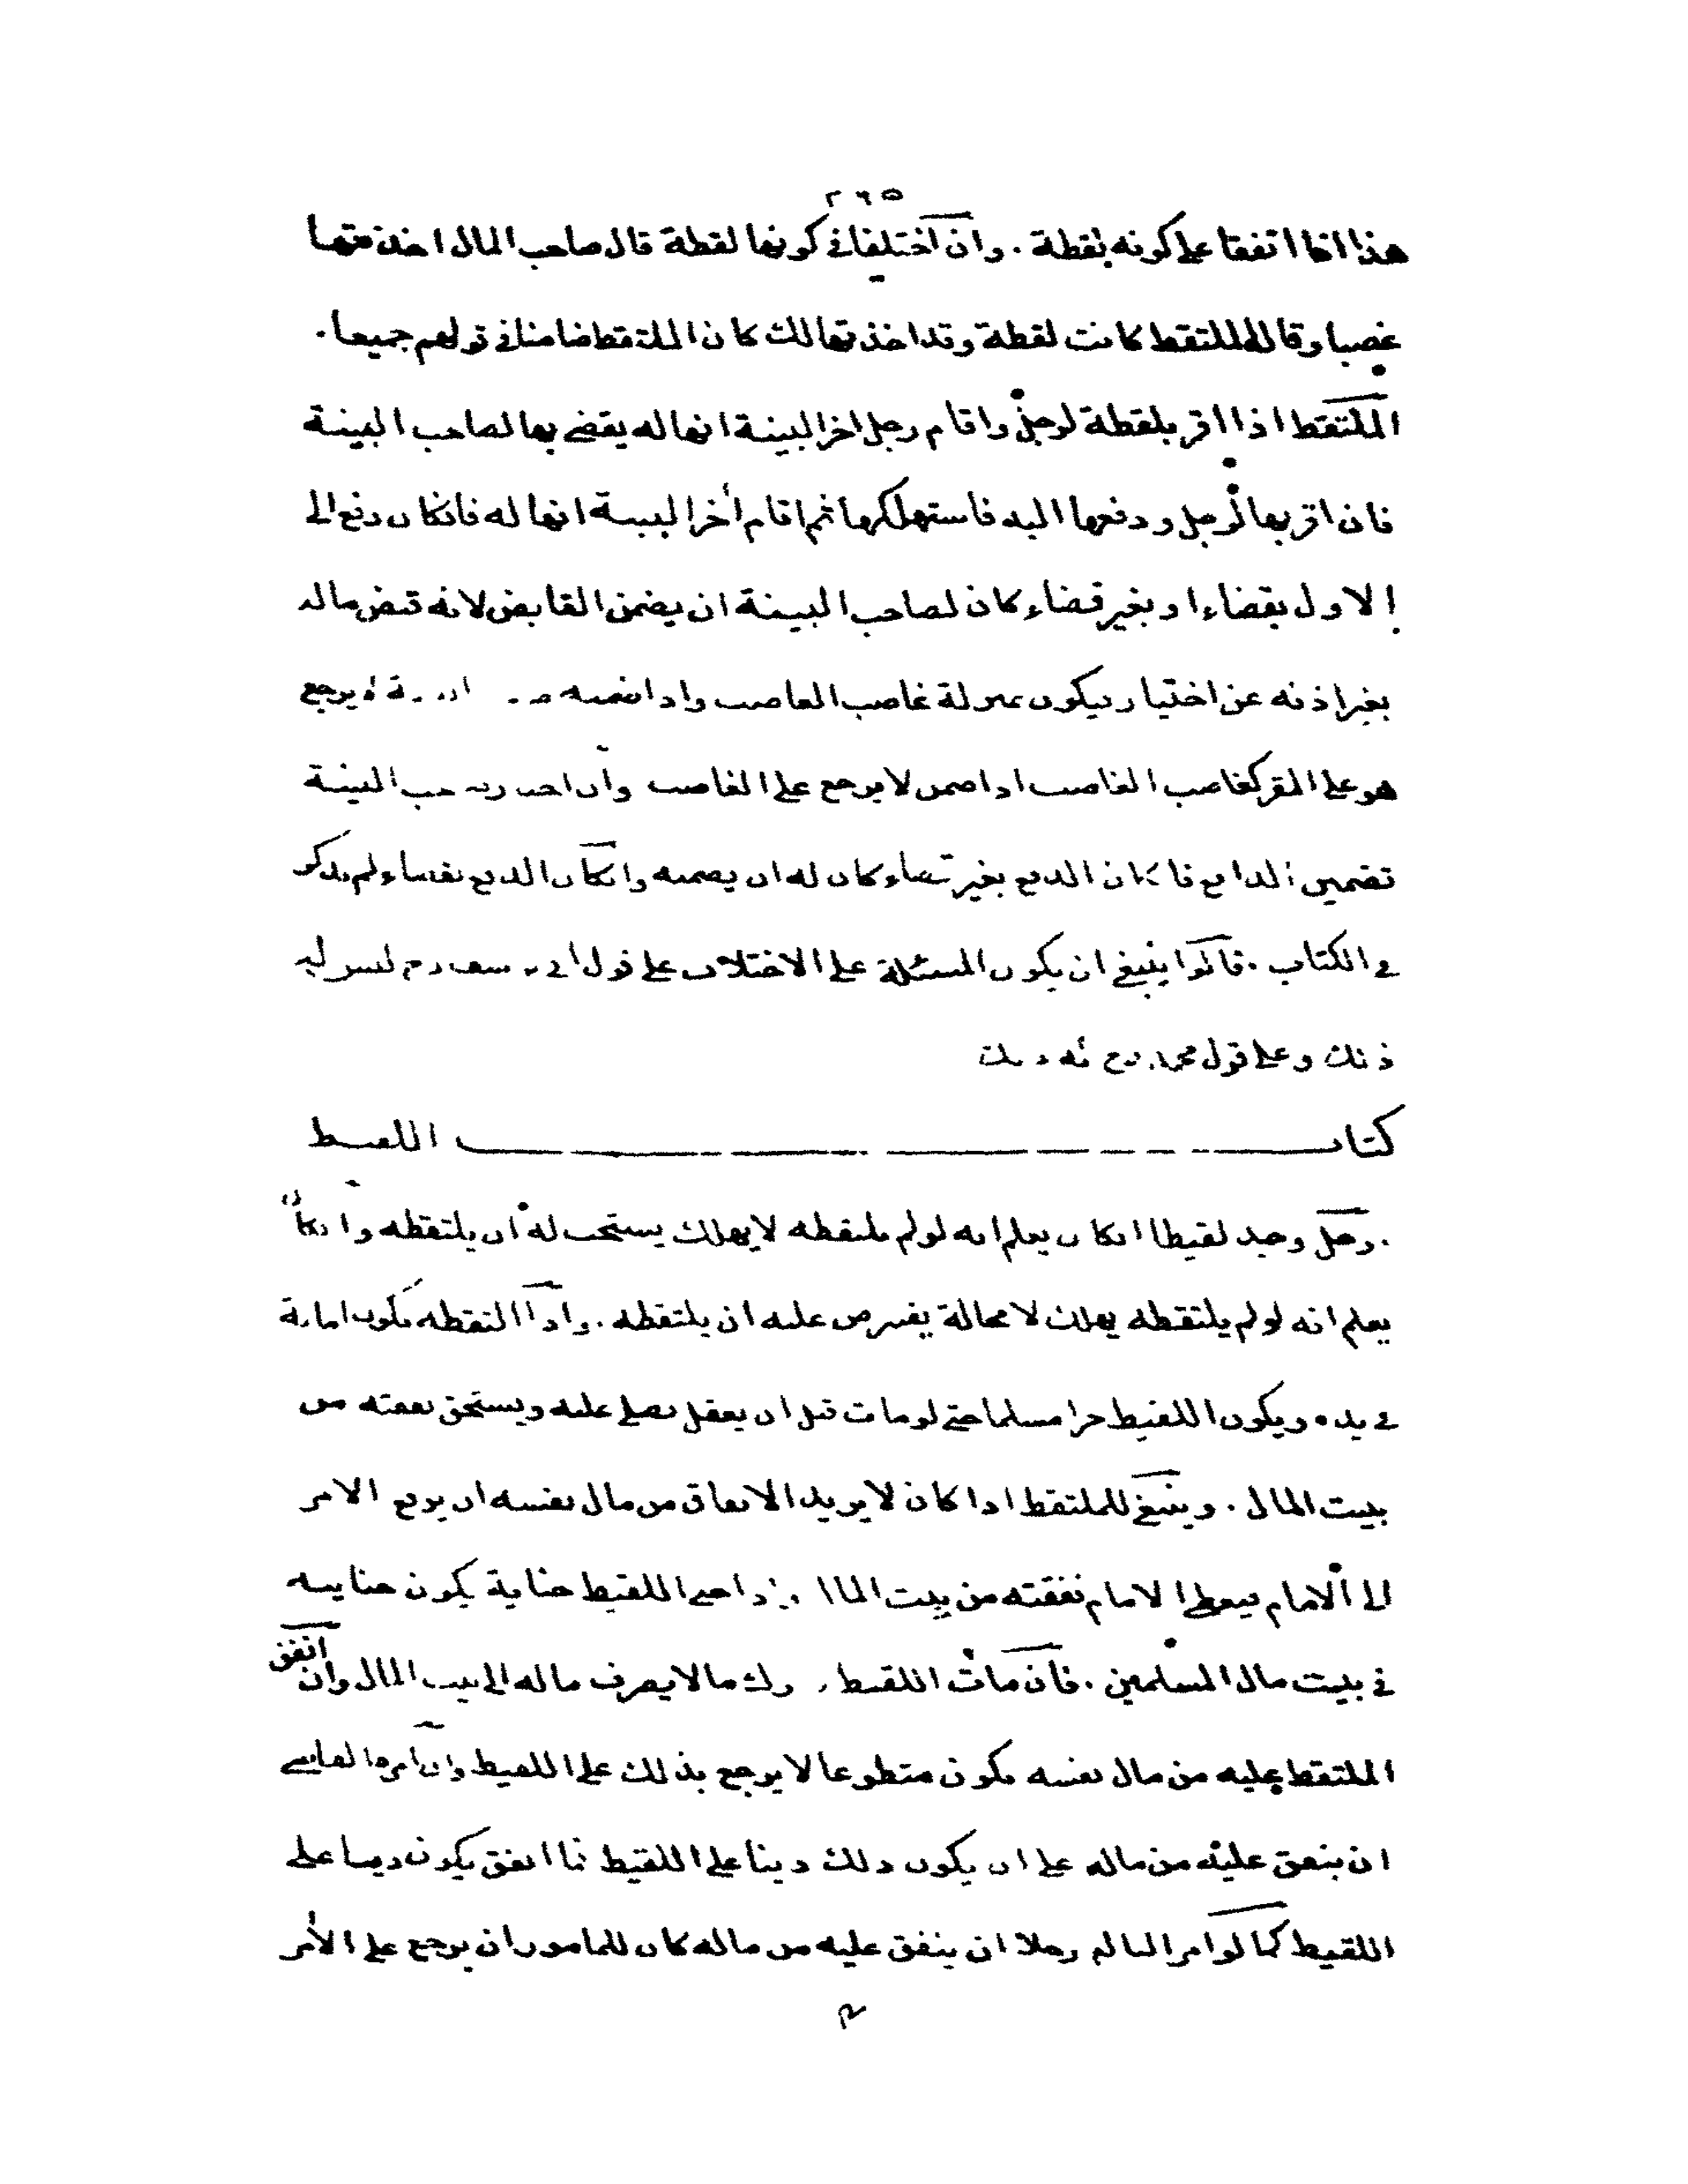 ٢٦٥
هذا اذا اتفقا على كونه لقطة . وان اختلفا في كونها لقطة قال صاحب المال اخذتها
غصبا وقال الملتقط كانت لقطة وقد اخذتها لك كان الملتقط ضامنا في قولهم جميعا .
الملتقط اذا اقر بلقطة لرجل واقام رجل اخر البينة انها له يقضي بها لصاحب البينة
فان اقر بها لرجل ودفعها اليه فاستهلكها ثم اقام أخر البينة انها له فانكان دفع الى
الاول بقضاء او بغير قضاء كان لصاحب البينة ان يضمن القابض لانه قبض ماله
بغير اذنه عن اختيار فيكون بمنزلة غاصب الغاصب واذا ضمنه لا يرجع
هو على المقر كغاصب الغاصب اذا ضمن لا يرجع على الغاصب وان البينة
تضمين الدافع فا كان الدفع بغير قضاء كان له ان يضمنه وانكان الدفع بقضاء ولم يذكر
في الكتاب . قالوا ينبغي ان يكون المسئلة على الاختلاف على قول ليس له
ذلك وعلى قول محمد رح له ذلك
كتاب اللقيط
. رجل وجد لقيطا انكان يعلم انه لو لم يلتقطه لا يهلك يستحب له ان يلتقطه وانكان
يعلم انه لو لم يلتقطه يهلك لا محالة يفترض عليه ان يلتقطه . واذا التقطه يكون امانة
في يده ويكون اللقيط حرا مسلما حتى لو مات قبل ان يعقل يصلى عليه ويستحق نفقته من
بيت المال . وينبغي للملتقط اذا كان لا يريد الانفاق من مال نفسه ان يرفع الامر
الى الامام فيعطي الامام نفقته من بيت المال واذا جنى اللقيط جناية يكون جنايته
في بيت مال المسلمين . فان مات اللقيط وترك مالا يصرف ماله الى بيت المال وان انفق
الملتقط عليه من مال نفسه يكون متطوعا لا يرجع بذلك على اللقيط وان امره القاضي
ان ينفق عليه من ماله على ان يكون ذلك دينا على اللقيط فما انفق يكون دينا على
اللقيط كما لو امر البالغ رجلا ان ينفق عليه من ماله كان للمامور ان يرجع على الأمر